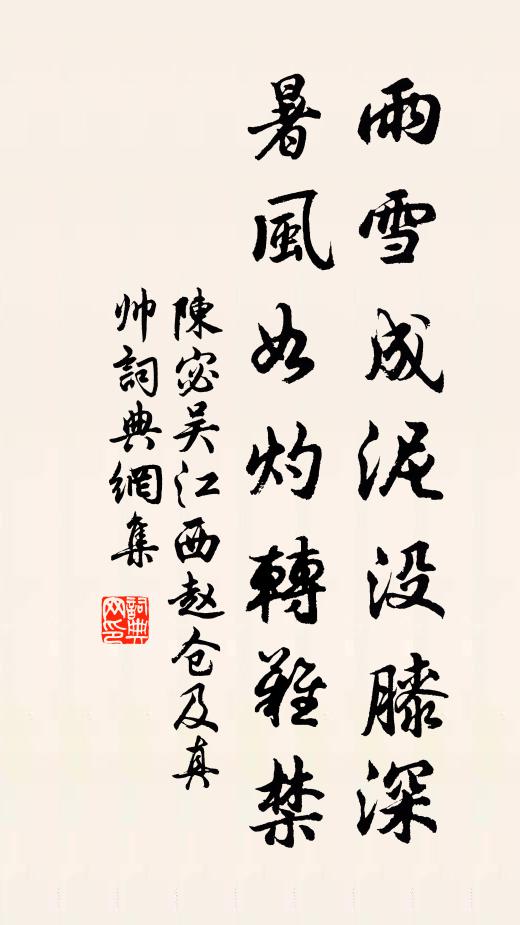 雨雪成泥没膝深
暑風如灼轉難禁
陳宓吴江西赵仓及真
帅詞典網集
詞典网印